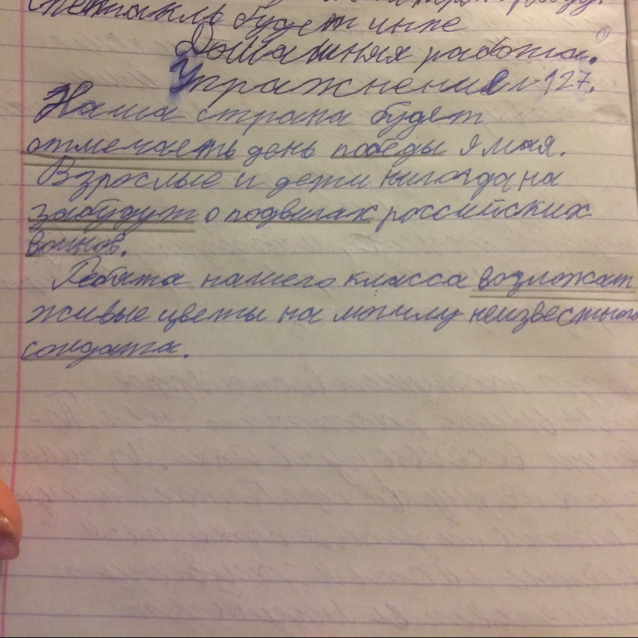 спектакль будет
Домашняя работа.
Упражнение №127.
Наша страна будет
отмечать день победы 9 мая.
Взрослые и дети никогда на
забудут о подвигах российских
воинов.
Ребята нашего класса возложат
живые цветы на могилу неизвестного
солдата.